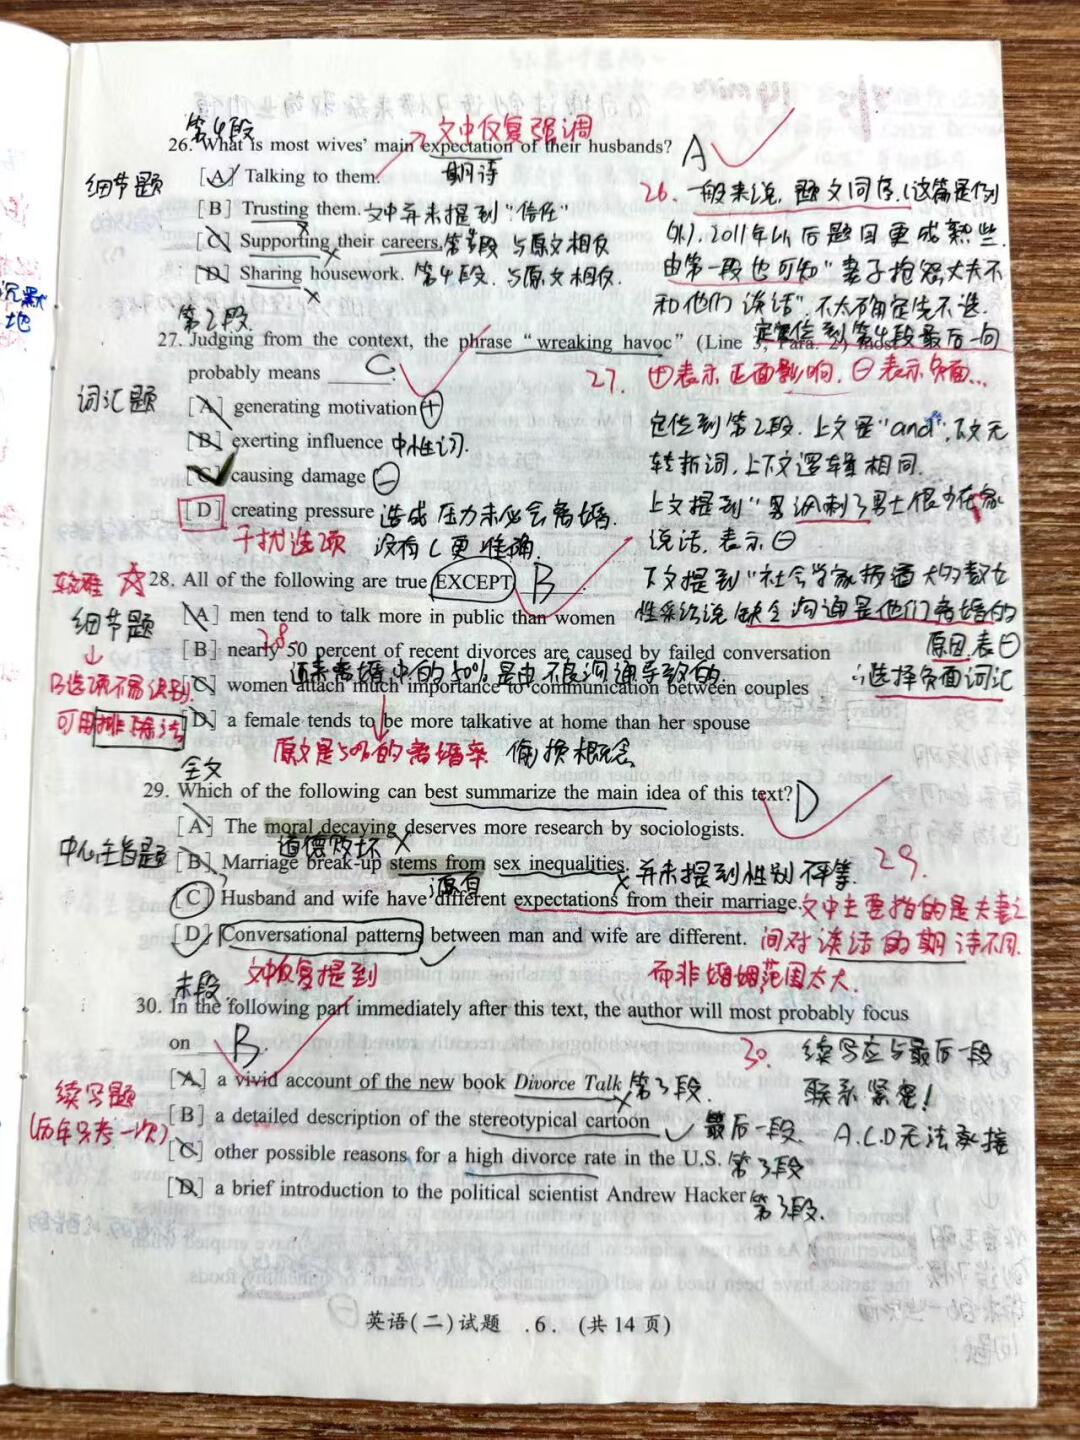 第4段
文中反复强调
26. What is most wives' main expectation of their husbands? A
期待
细节题
[A] Talking to them.
[B] Trusting them. 文中并未提到"信任"
[C] Supporting their careers. 第4段 与原文相反
[D] Sharing housework. 第4段. 与原文相反.
26. 一般来说, 题文同序.(这篇是例
外). 2011年以后题目更成熟些.
由第一段也可知"妻子抱怨丈夫不
和他们谈话". 不太确定先不选.
定位到第4段最后一句
第2段.
27. Judging from the context, the phrase "wreaking havoc" (Line 3, Para. 2) most
probably means C.
词汇题
[A] generating motivation +
[B] exerting influence 中性词.
[C] causing damage −
[D] creating pressure 造成压力未必会离婚.
干扰选项 没有C更准确.
27. ⊕表示正面影响, ⊖表示负面...
定位到第2段. 上文是"and", 下文无
转折词, 上下文逻辑相同.
上文提到"男士很少在家
说话. 表示⊖
下文提到"社会学家报道大多数女
性采访说缺乏沟通是他们离婚的
原因. 表⊖
∴选择负面词汇
较难 ☆
28. All of the following are true EXCEPT B
细节题
↓
B选项不易识别.
可用排除法
[A] men tend to talk more in public than women
28.
[B] nearly 50 percent of recent divorces are caused by failed conversation
近来离婚中的50%是由不良沟通导致的.
[C] women attach much importance to communication between couples
[D] a female tends to be more talkative at home than her spouse
原文是50%的离婚率 偷换概念
全文
29. Which of the following can best summarize the main idea of this text? D
中心主旨题
[A] The moral decaying deserves more research by sociologists.
道德败坏
[B] Marriage break-up stems from sex inequalities. 并未提到性别不平等.
源自
29.
[C] Husband and wife have different expectations from their marriage. 文中主要指的是夫妻之
[D] Conversational patterns between man and wife are different. 间对谈话的期待不同.
文中反复提到
而非婚姻范围太大.
末段
30. In the following part immediately after this text, the author will most probably focus
on B.
续写题
(历年只考一次)
[A] a vivid account of the new book Divorce Talk 第3段.
[B] a detailed description of the stereotypical cartoon 最后一段.
[C] other possible reasons for a high divorce rate in the U.S. 第3段
[D] a brief introduction to the political scientist Andrew Hacker 第3段.
30. 续写应与最后一段
联系紧密!
A.C.D无法承接
英语(二)试题 .6. (共14页)
沉默
地